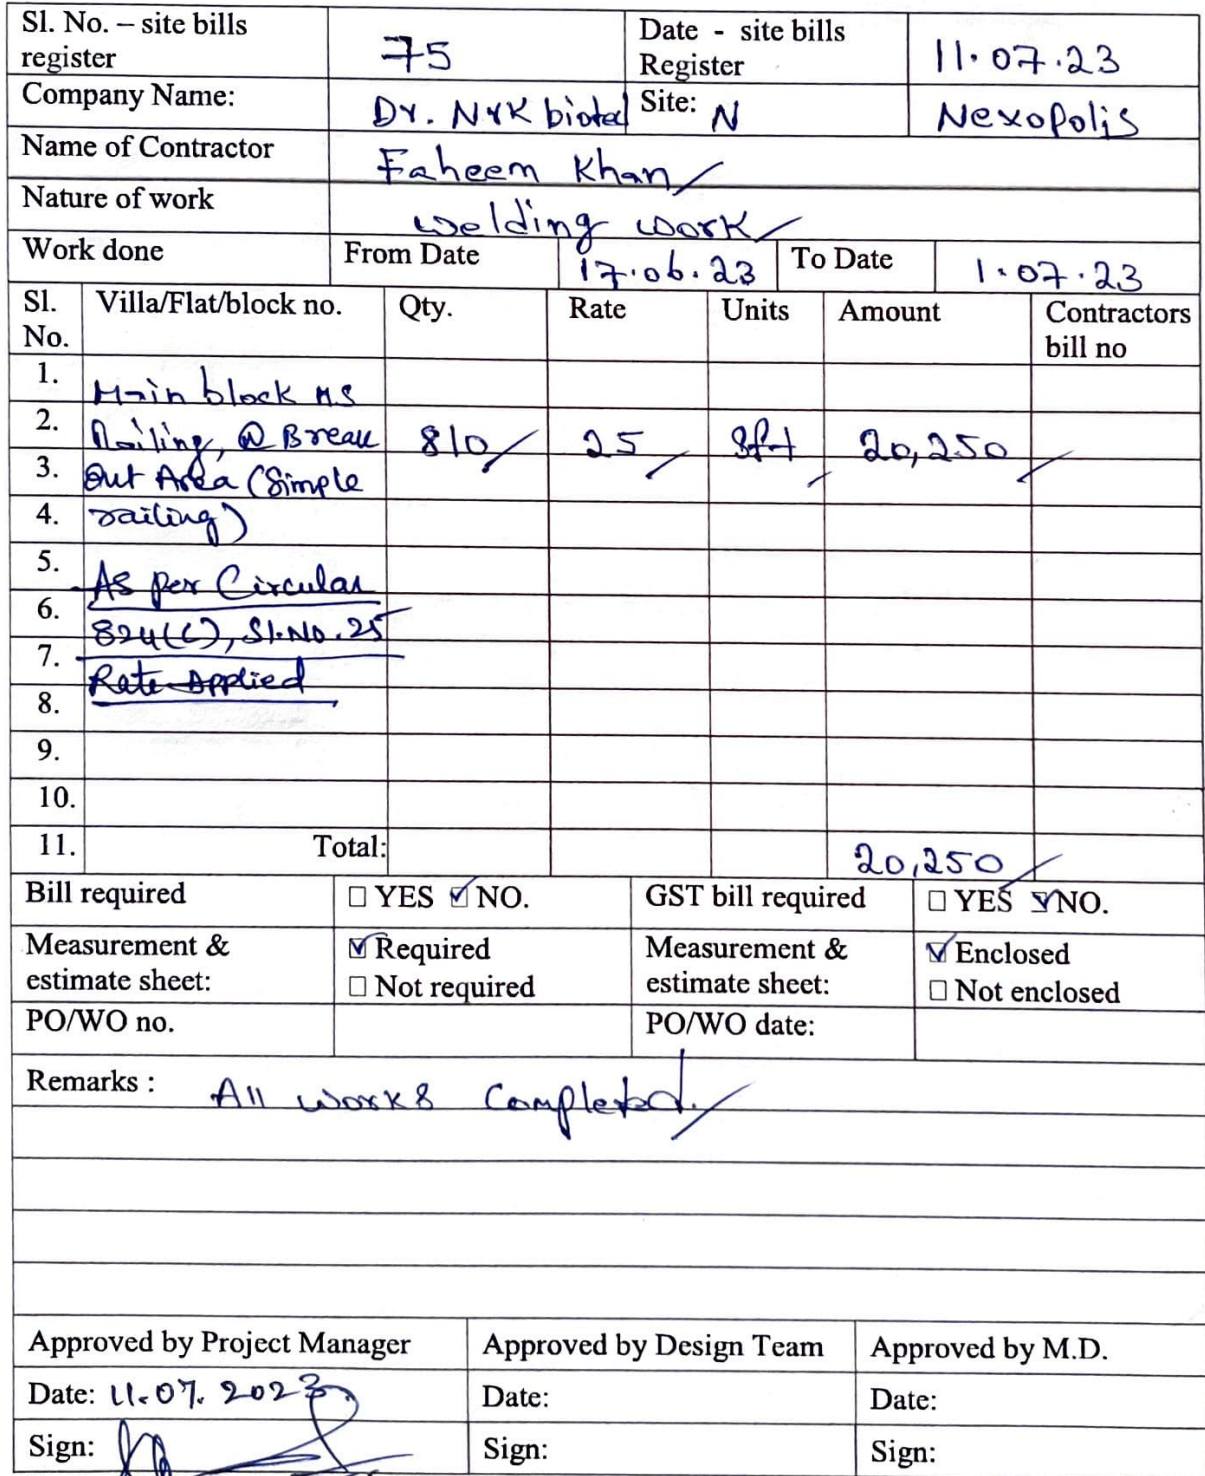 Sl. No. – site bills register 75 Date - site bills Register 11.07.23
Company Name: Dr. NrK biotel Site: N Nexopolis
Name of Contractor Faheem Khan
Nature of work welding work
Work done From Date 17.06.23 To Date 1.07.23
Sl. No. Villa/Flat/block no. Qty. Rate Units Amount Contractors bill no
1. Main block MS
2. Railing, @ Break 810 25 Sft 20,250
3. Out Area (Simple
4. railing)
5. As per Circular
6. 824(C), Sl.No.25
7. Rate Applied
8.
9.
10.
11. Total: 20,250
Bill required ☐ YES ☑ NO. GST bill required ☐ YES ☑ NO.
Measurement & estimate sheet: ☑ Required ☐ Not required Measurement & estimate sheet: ☑ Enclosed ☐ Not enclosed
PO/WO no. PO/WO date:
Remarks : All works Completed.
Approved by Project Manager Approved by Design Team Approved by M.D.
Date: 11.07.2023 Date: Date:
Sign: Sign: Sign: